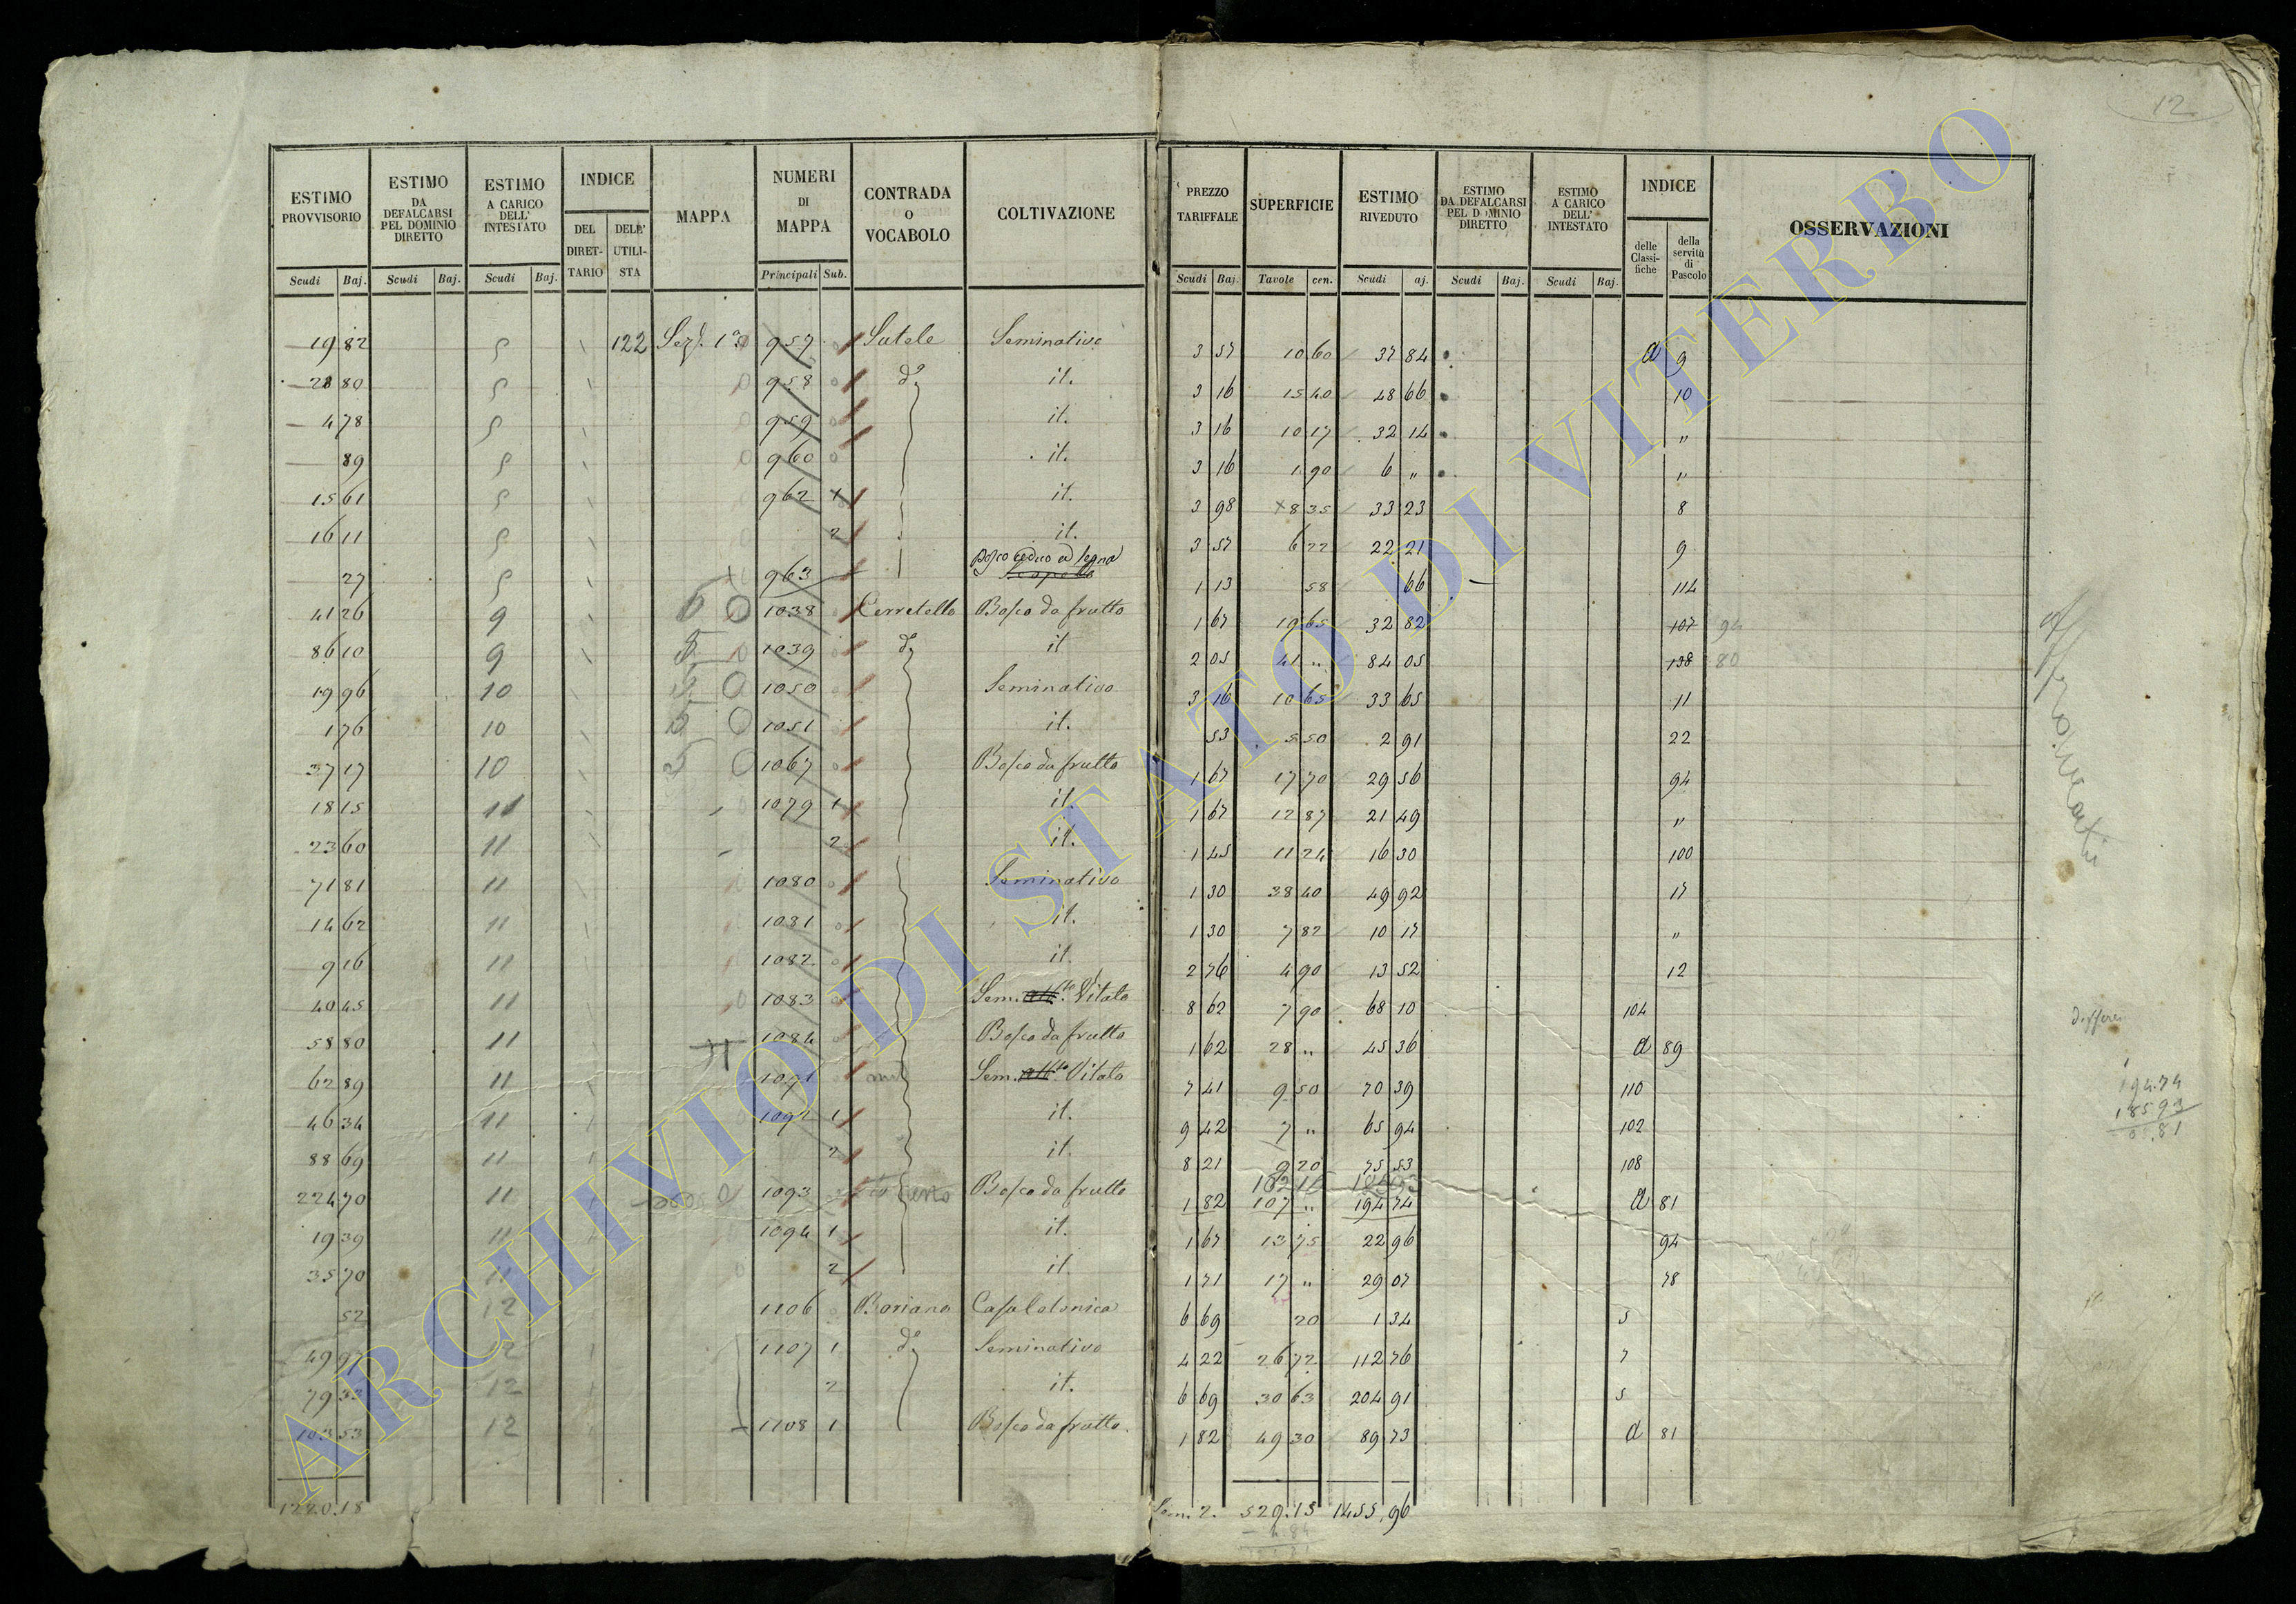 12
ESTIMO PROVVISORIO | ESTIMO DA DEFALCARSI PEL DOMINIO DIRETTO | ESTIMO A CARICO DELL' INTESTATO | INDICE DEL DIRETTARIO | DELL' UTILISTA | MAPPA | NUMERI DI MAPPA | CONTRADA O VOCABOLO | COLTIVAZIONE | PREZZO TARIFFALE | SUPERFICIE | ESTIMO RIVEDUTO | ESTIMO DA DEFALCARSI PEL D MINIO DIRETTO | ESTIMO A CARICO DELL' INTESTATO | INDICE delle Classifiche | della servitù di Pascolo | OSSERVAZIONI
Scudi Baj. | Scudi Baj. | Scudi Baj. | Principali Sub. | Scudi Baj. | Tavole cen. | Scudi aj. | Scudi Baj. | Scudi Baj.
19 82 | 9 | 122 | Sez. 1a | 957 | 0 | Sutele | Seminativo | 3 57 | 10 60 | 37 84 | a 9
28 80 | 9 | 958 | 0 | do | it. | 3 16 | 15 40 | 48 66 | 10
4 78 | 9 | 959 | 0 | it. | 3 16 | 10 17 | 32 14 | "
89 | 9 | 960 | 0 | it. | 3 16 | 1 90 | 6 " | "
15 61 | 9 | 962 | 1 | it. | 3 98 | 8 35 | 33 23 | 8
16 11 | 9 | 2 | it. | 3 57 | 6 22 | 22 21 | 9
27 | 9 | 963 | Bosco ceduo ad legna | 1 13 | 58 | 66 | 114
41 26 | 9 | 0 | 1038 | 0 | Cerretello | Bosco da frutto | 1 67 | 19 65 | 32 82 | 107 94
86 10 | 9 | 1039 | 0 | do | it | 2 05 | 41 " | 84 05 | 138 80
19 96 | 10 | 0 | 1050 | 0 | Seminativo | 3 16 | 10 65 | 33 65 | 11
1 76 | 10 | 0 | 1051 | 0 | it. | 53 | 5 50 | 2 91 | 22
37 17 | 10 | 0 | 1067 | 0 | Bosco da frutto | 1 67 | 17 70 | 29 56 | 94
18 15 | 11 | 1079 | 1 | it. | 1 67 | 12 87 | 21 49 | "
23 60 | 11 | 2 | it. | 1 45 | 11 24 | 16 30 | 100
71 81 | 11 | 1080 | 0 | Seminativo | 1 30 | 38 40 | 49 92 | 17
14 62 | 11 | 1081 | 0 | it. | 1 30 | 7 82 | 10 17 | "
9 16 | 11 | 1082 | 0 | it. | 2 76 | 4 90 | 13 52 | 12
40 45 | 11 | 1083 | 0 | Sem. Vitato | 8 62 | 7 90 | 68 10 | 104
58 80 | 11 | 1084 | 0 | Bosco da frutto | 1 62 | 28 " | 45 36 | a 89
62 89 | 11 | 1091 | Sem. Vitato | 7 41 | 9 50 | 70 39 | 110
46 34 | 11 | 1 | it. | 9 42 | 7 " | 65 94 | 102
88 69 | 11 | 2 | it. | 8 21 | 9 20 | 75 53 | 108
224 70 | 11 | 1093 | Bosco da frutto | 1 82 | 107 " | 194 74 | a 81
19 39 | 11 | 1094 | 1 | it. | 1 67 | 13 75 | 22 96 | 94
35 70 | 11 | 2 | it. | 1 71 | 17 " | 29 07 | 78
52 | 12 | 1106 | 0 | Boriana | Casa Colonica | 6 69 | 20 | 1 34 | 5
49 97 | 12 | 1107 | 1 | do | Seminativo | 4 22 | 26 72 | 112 76 | 7
79 32 | 12 | 2 | it. | 6 69 | 30 63 | 204 91 | 5
103 53 | 12 | 1108 | 1 | Bosco da frutto. | 1 82 | 49 30 | 89 73 | a 81
1220.18 | 529.15 | 1455,96
194.74
185 93
8.81
ARCHIVIO DI STATO DI VITERBO